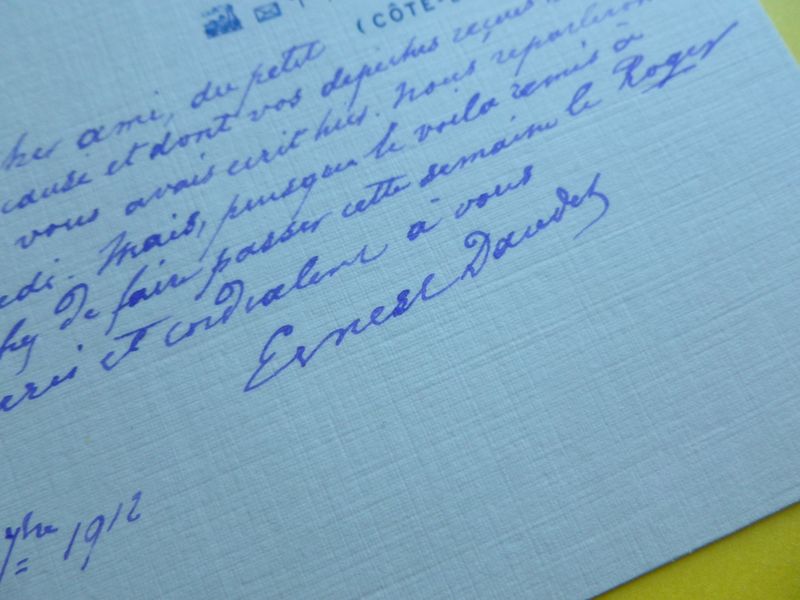 (CÔTE-
cher ami, du petit
cause et dont vos depeches reçues
vous avais ecrit hier. Nous reparlerons
edi. Mais, puisque le voila remis à
de faire passer cette semaine le Roger
et cordialement à vous
Ernest Daudet
1912